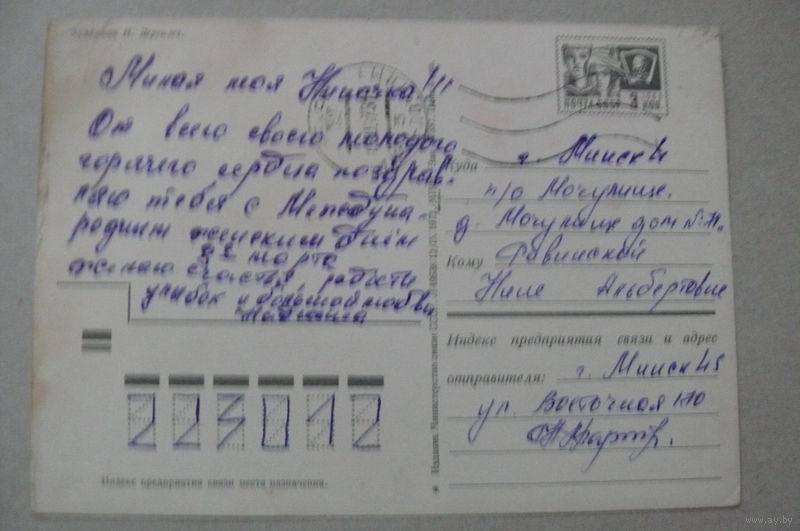 Художник И. Дергилев
Милая моя Ниночка!!!
От всего своего молодого
горячего сердца поздрав-
ляю тебя с Междуна-
родним женским днём
8е марта
желаю счастья, радости
улыбок и большой любви
ПОЧТА СССР 3 КОП
Куда г. Минск 4
п/о Мочулище.
д. Мочулище дом №
Кому
Нине Альбертовне
Индекс предприятия связи и адрес
отправителя: г. Минск 45
ул. Восточная 170
223012
Индекс предприятия связи места назначения.
Издание Министерства связи СССР.
www.ay.by